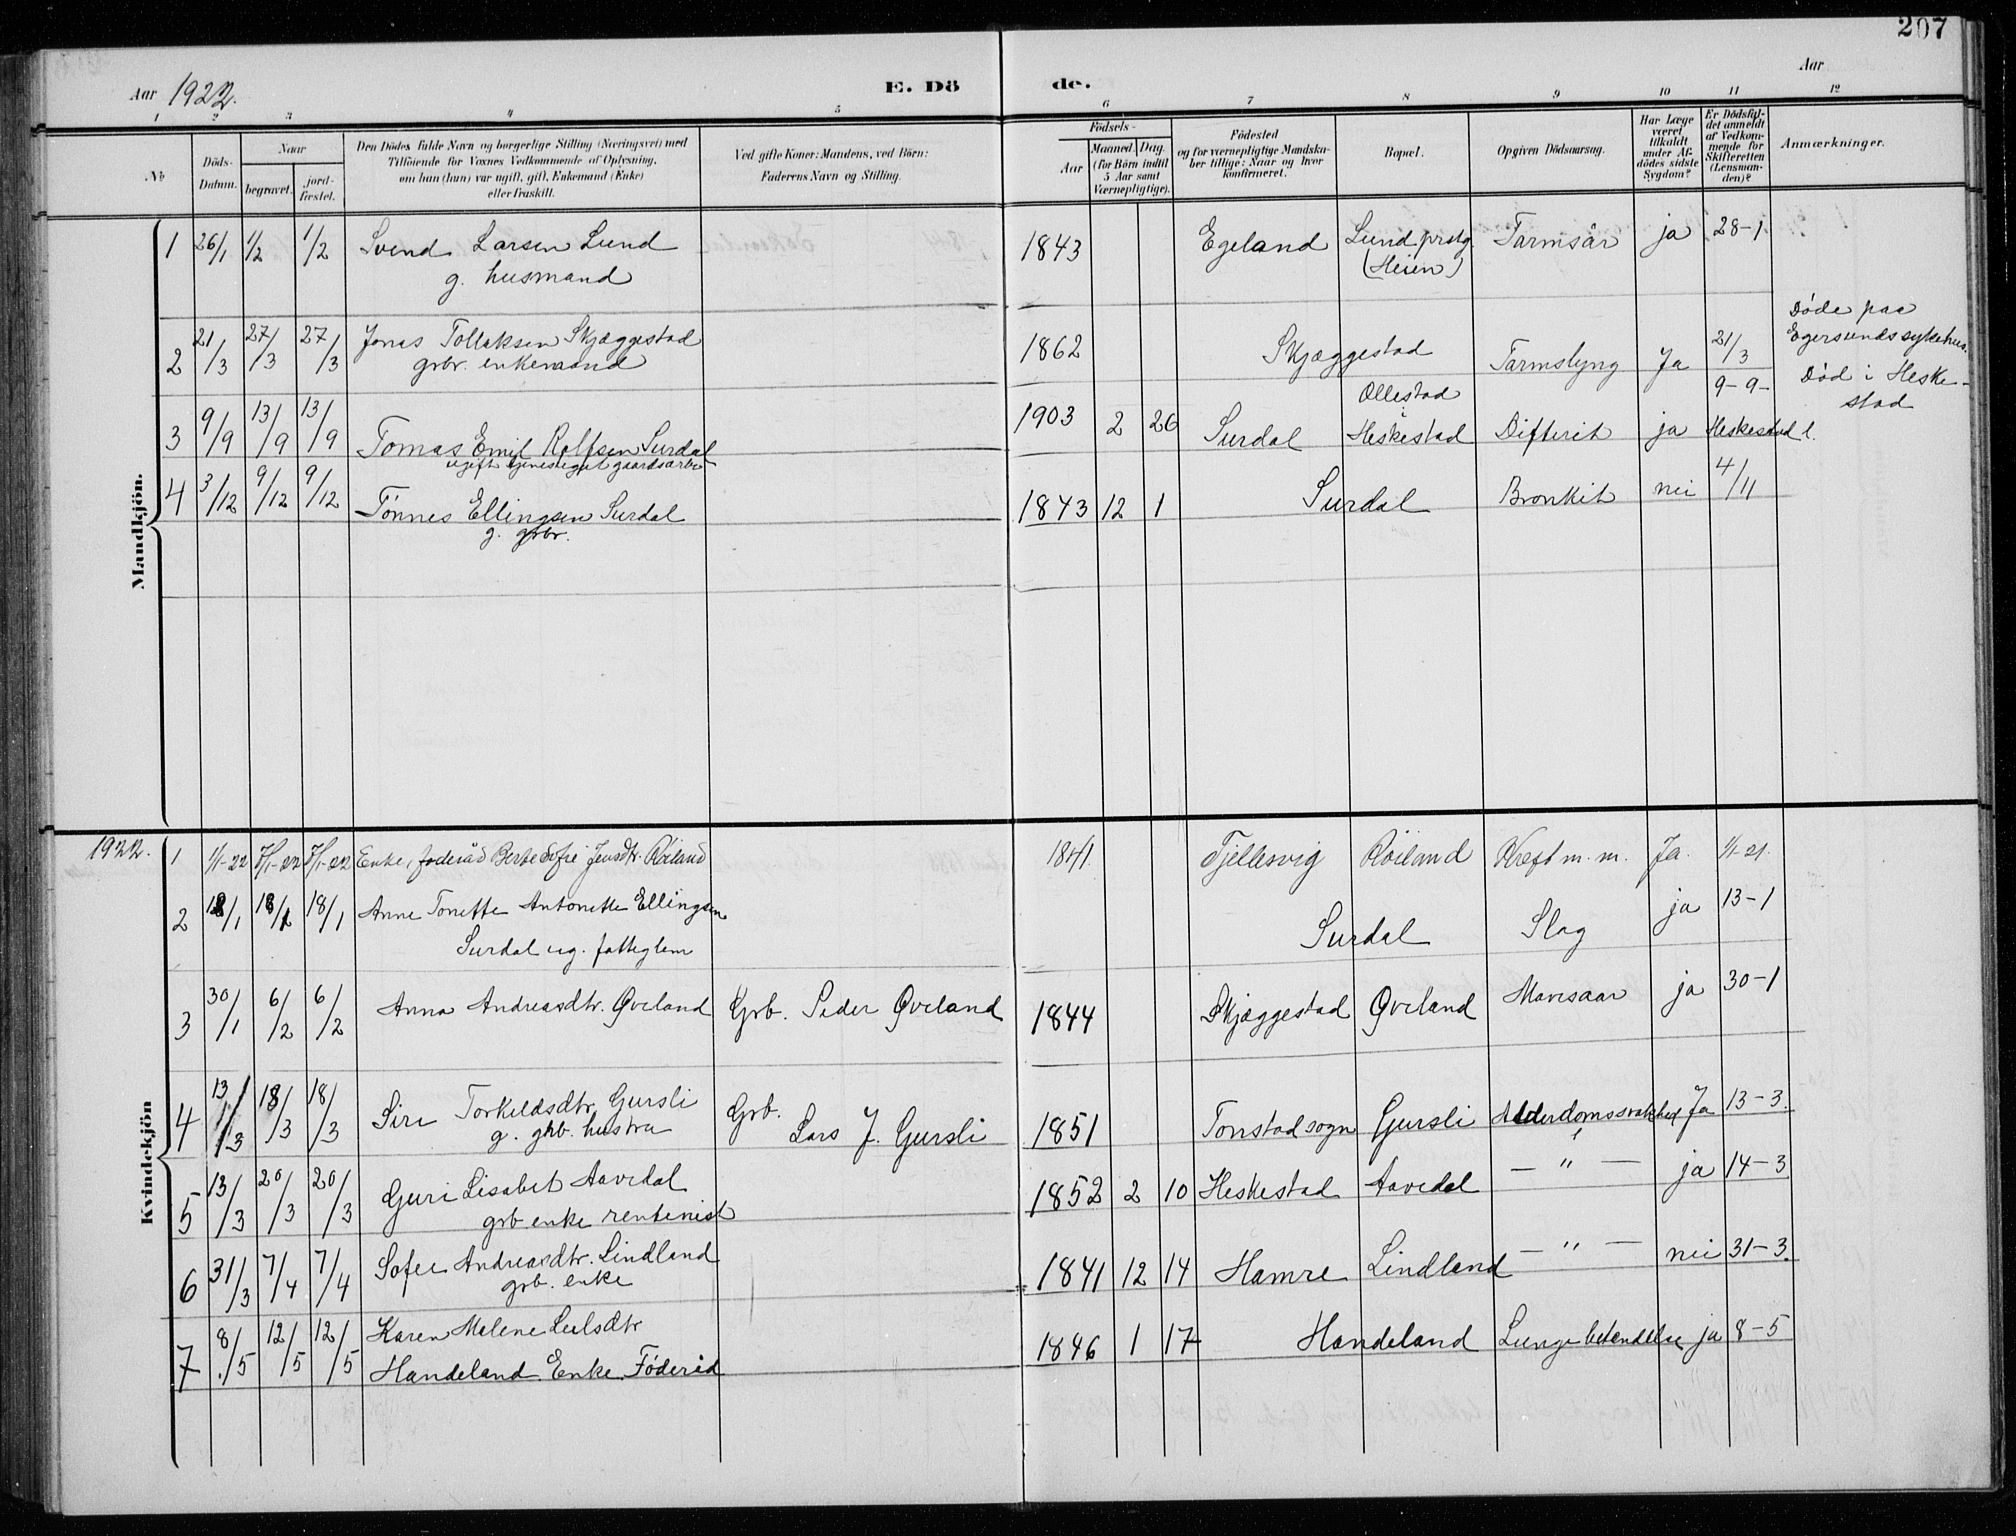 207
Aar 1922.
E. Dö
de.
Aar
1 2 3 4 5 6 7 8 9 10 11 12
№
Döds-Datum.
Naar
begravet.
jord-fæstet.
Den Dödes fulde Navn og borgerlige Stilling (Næringsvei) med
Tilföiende for Voxnes Vedkommende af Oplysning,
om han (hun) var ugift, gift, Enkemand (Enke)
eller fraskilt.
Ved gifte Koner: Mandens, ved Börn:
Faderens Navn og Stilling.
Födsels-
Aar
Maaned. Dag.
(for Börn indtil
5 Aar samt
Værnepligtige).
Födested
og for værnepligtige Mandska-
ber tillige: Naar og hvor
konfirmeret.
Bopæl.
Opgiven Dödsaarsag.
Har Læge
været
tilkaldt
under Af-
dödes sidste
Sygdom?
Er Dödsfal-
det anmeldt
af Vedkom-
mende for
Skifteretten
(Lensman-
den)?
Anmærkninger.
Mandkjön.
1 26/1 1/2 1/2 Svend Larsen Lund 1843 Egeland Lund prstg. Tarmsår ja 28-1
g. husmand (Heien)
2 21/3 27/3 27/3 Jonas Tollaksen Skjæggestad 1862 Skjæggestad Tarmslyng Ja 21/3 Døde paa
gbr. enkemand Egersunds sykehus.
3 9/9 13/9 13/9 Tomas Emil Rolfsen Surdal 1903 2 26 Surdal Ollestad i Heskestad Difterit ja 9-9- Heskestad l. Død i Heske-
stad
ugift tjenestegut gaardsarb.
4 3/12 9/12 9/12 Tønnes Ellingsen Surdal 1843 12 1 Surdal Bronkit nei 4/11
g. gbr.
Kvindekjön
1922. 1 1/1-22 7/1-22 7/1-22 Enke, foderåd Berte Sofie Jensdtr. Röiland 1841. Fjellesvig Röiland Kreft m. m. Ja. 1/1-21.
2 12/1 18/1 18/1 Anne Tonette Antonette Ellingsen Surdal Slag ja 13-1
Surdal ug. fattiglem
3 30/1 6/2 6/2 Anna Andreasdtr. Øveland Grb. Peder Øveland 1844 Skjæggestad Øveland Mavesaar ja 30-1
4 13/3 18/3 18/3 Siri Torkildsdtr. Gursli Grb. Lars J. Gursli 1851 Tonstad sogn Gursli Alderdomssvakhed Ja 13-3.
g. gbr. hustru
5 13/3 20/3 20/3 Guri Lisabet Aavedal 1852 2 10 Heskestad Aavedal — " — ja 14-3
grb enke rentenist
6 31/3 7/4 7/4 Sofie Andreasdtr. Lindland 1841 12 14 Hamre Lindland — " — nei 31-3.
grb. enke
7 8/5 12/5 12/5 Karen Malene Leelsdtr 1846 1 17 Handeland Lungebetendelse ja 8-5
Handeland. Enke. Föderåd